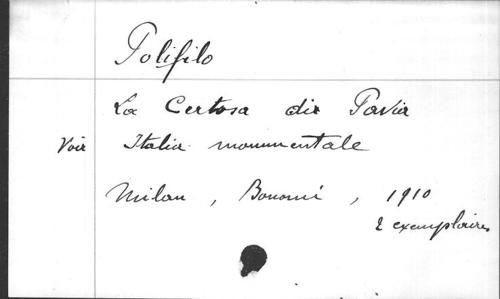 Polifilo
La Certosa di Pavia
Voir Italia monumentale
Milan, Bonomi, 1910
2 exemplaires